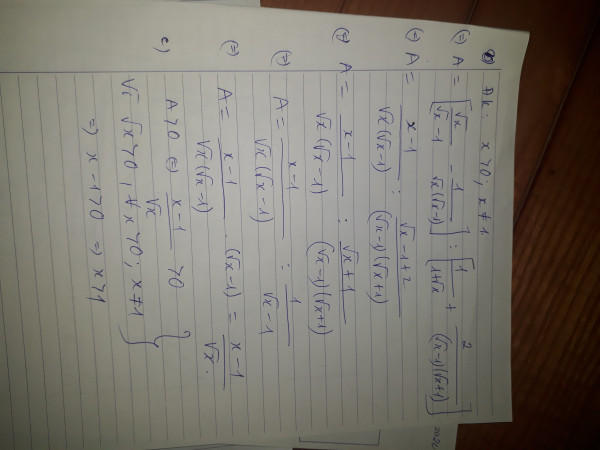 a) ĐK: x>0; x≠1
(=) A = [√x/(√x-1) - 1/(√x(√x-1))] : [1/(1+√x) + 2/((√x-1)(√x+1))]
(=) A = (x-1)/(√x(√x-1)) : (√x-1+2)/((√x-1)(√x+1))
(=) A = (x-1)/(√x(√x-1)) : (√x+1)/((√x-1)(√x+1))
(=) A = (x-1)/(√x(√x-1)) : 1/(√x-1)
(=) A = (x-1)/(√x(√x-1)) . (√x-1) = (x-1)/√x.
c) A>0 (=) (x-1)/√x >0
Vì √x>0; ∀x>0; x≠1
=) x-1>0 => x>1